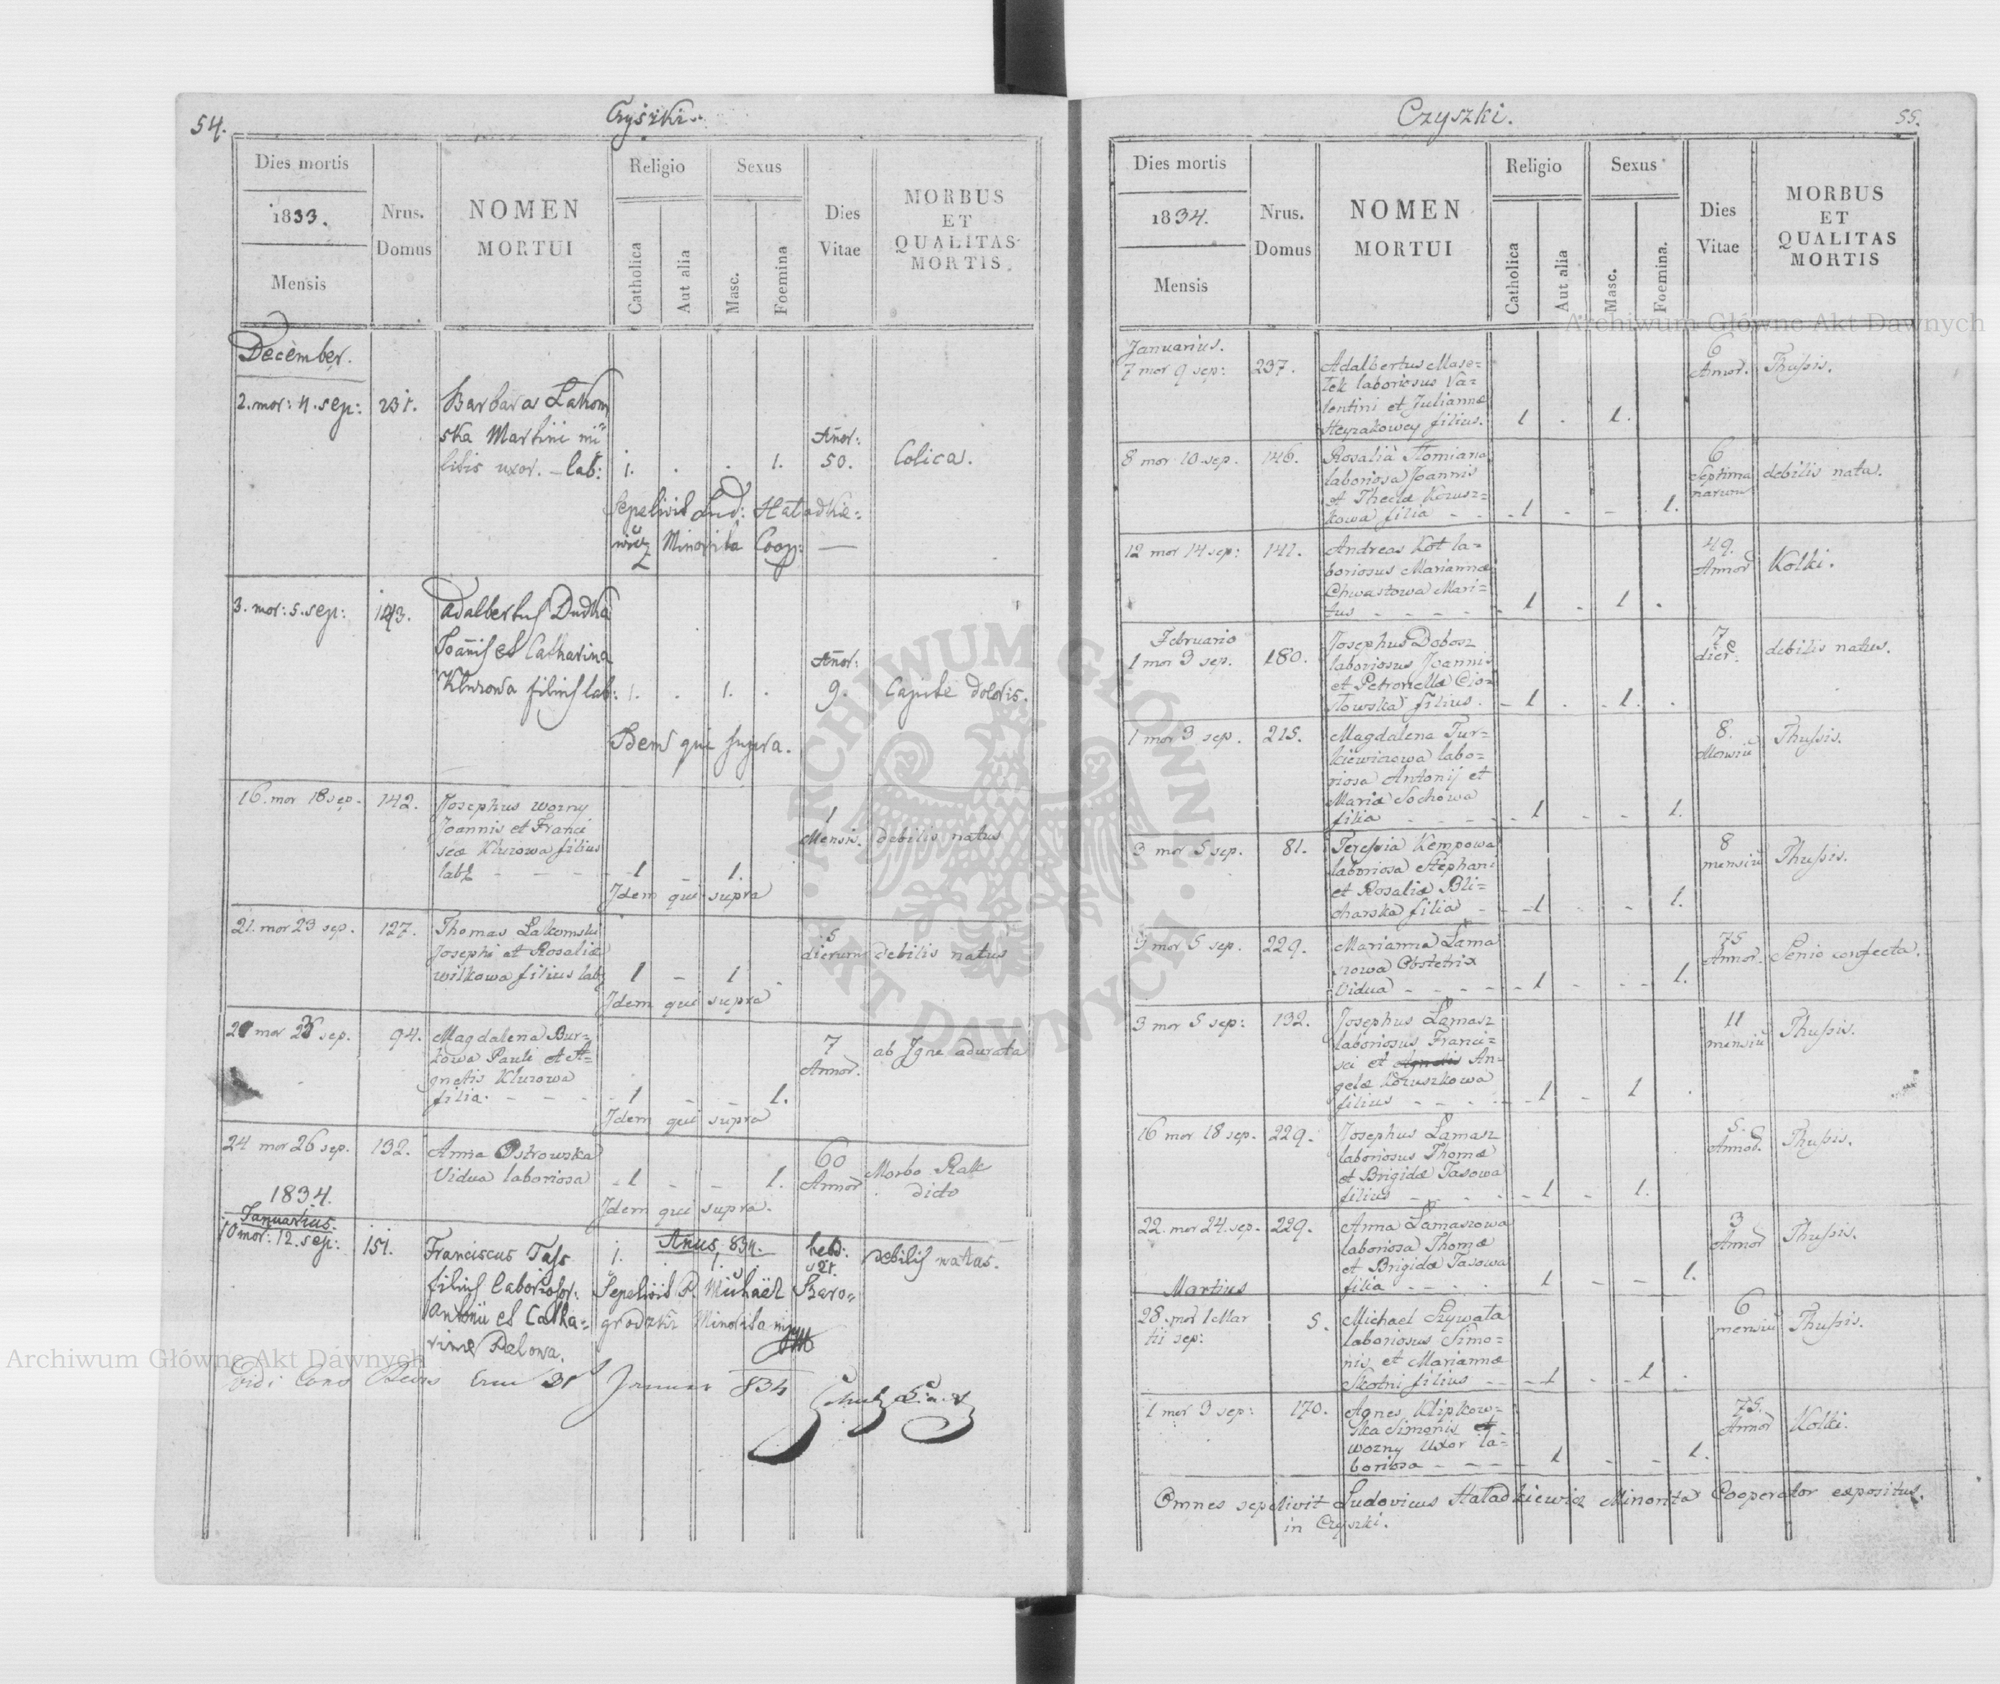 54.
Czyszki.
Dies mortis
1833.
Mensis
Nrus.
Domus
NOMEN
MORTUI
Religio
Catholica
Aut alia
Sexus
Masc.
Foemina
Dies
Vitae
MORBUS
ET
QUALITAS
MORTIS.
December.
2. mor: 4. sep: 231. Barbara Lakom
ska Martini mi
litis uxor. – lab: 1. . . 1. Anor: 50. Colica.
Sepelivit Lud: Hatadkie=
wicz Minorita Coop: —
3. mor: 5. sep: 143. Adalbertus Dudka
Joanis et Catharina
Kluzowa filius lab: 1. . 1. . Anor: 9. Capite doloris.
Idem qui supra.
16. mor 18 sep. 142. Josephus wozny
Joannis et Franci
scæ Kluzowa filius
lab - - - 1 - 1. 1 Mensis. debilis natus
Idem qui supra
21. mor 23 sep. 127. Thomas Lakomski
Josephi et Rosaliæ
wilkowa filius lab 1 - 1 5 dierum debilis natus
Idem qui supra
mor sep. 94. Magdalena Bur=
zowa Pauli et A=
gnetis Kluzowa
filia. - - - 1 - - 1. 7 Annor. ab Igne adurata
Idem qui supra
24 mor 26 sep. 132. Anna Ostrowska
Vidua laboriosa - 1 - - 1. 60 Annor Morbo Rak
dicto
Idem qui supra.
1834.
Januarius.
10 mor: 12. sep: 151. Franciscus Tass 1. Anus, 834. hebd: debilis natus.
filius laborioσor. Sepelivit P. Michael Baro=
Antonii et Catha= grodzki Minorita
rinæ Pelowa.
Vidi Januar 834
55.
Czyszki.
Dies mortis
1834.
Mensis
Nrus.
Domus
NOMEN
MORTUI
Religio
Catholica
Aut alia
Sexus
Masc.
Foemina.
Dies
Vitae
MORBUS
ET
QUALITAS
MORTIS
Januarius.
7 mor 9 sep: 237. Adalbertus Mase=
tek laboriosus Va=
lentini et Juliannæ
Heyzakowey filius. 1 . 1. 6 Annor. Thussis.
8 mor 10 sep. 146. Rosalia Slomiana
laboriosa Joannis
et Theclæ Kozusz=
kowa filia - - - 1 - - 1. 6 septima
narum debilis natu.
12 mor 14 sep: 141. Andreas Kot la=
boriosus Mariannæ
Chwastowa Mari=
tus - - - - - 1 - 1 . 49. Annor Kolki.
Februario
1 mor 3 sep. 180. Josephus Dobosz
laboriosus Joannis
et Petronellæ Cio=
slowska filius. - 1 . . 1. . 7 dier: debilis natus.
1 mor 3 sep. 215. Magdalena Tur=
kiewiczowa labo=
riosa Antonij et
Maria Sochowa
filia - - - - - 1 - - 1. 8. Mensiu Thussis.
3 mor 5 sep. 81. Teressia Kempowa
laboriosa Stephani
et Rosaliæ Bli=
charska filia - - 1 - - 1. 8 mensiu Thussis.
3 mor 5 sep. 229. Marianna Lama
szowa Obstetrix
Vidua - - - - - 1 - - - 1. 75 Annor. Senio confecta.
3 mor 5 sep: 132. Josephus Lamasz
laboriosus Franci=
sci et Agnetis An=
gelæ Kozuszkowa
filius - - - - - 1 - 1 . 11 mensiu Thussis.
16 mor 18 sep. 229. Josephus Lamasz
laboriosus Thomæ
et Brigidæ Tasowa
filius - - - - - 1 - 1. 5. Annor. Thussis.
22. mor 24. sep. 229. Anna Lamaszowa
laboriosa Thomæ
et Brigidæ Tasowa
filia - - - - 1 - - 1. 3 Annor Thussis.
Martius
28. mor 1 Mar
tii sep: 5. Michael Szywala
laboriosus Simo=
nis et Mariannæ
Skotni filius - - - 1 - 1 . 6 mensiu Thussis.
1 mor 3 sep: 170. Agnes Klipkow=
ska Simonis et
wozny Uxor la=
boriosa - - - - 1 - - 1. 75. Annor Kolki.
Omnes sepelivit Ludovicus Hatadkiewicz Minorita Cooperator expositus.
in Czyszki.
Archiwum Główne Akt Dawnych
Archiwum Główne Akt Dawnych
ARCHIWUM GŁÓWNE · AKT DAWNYCH ·